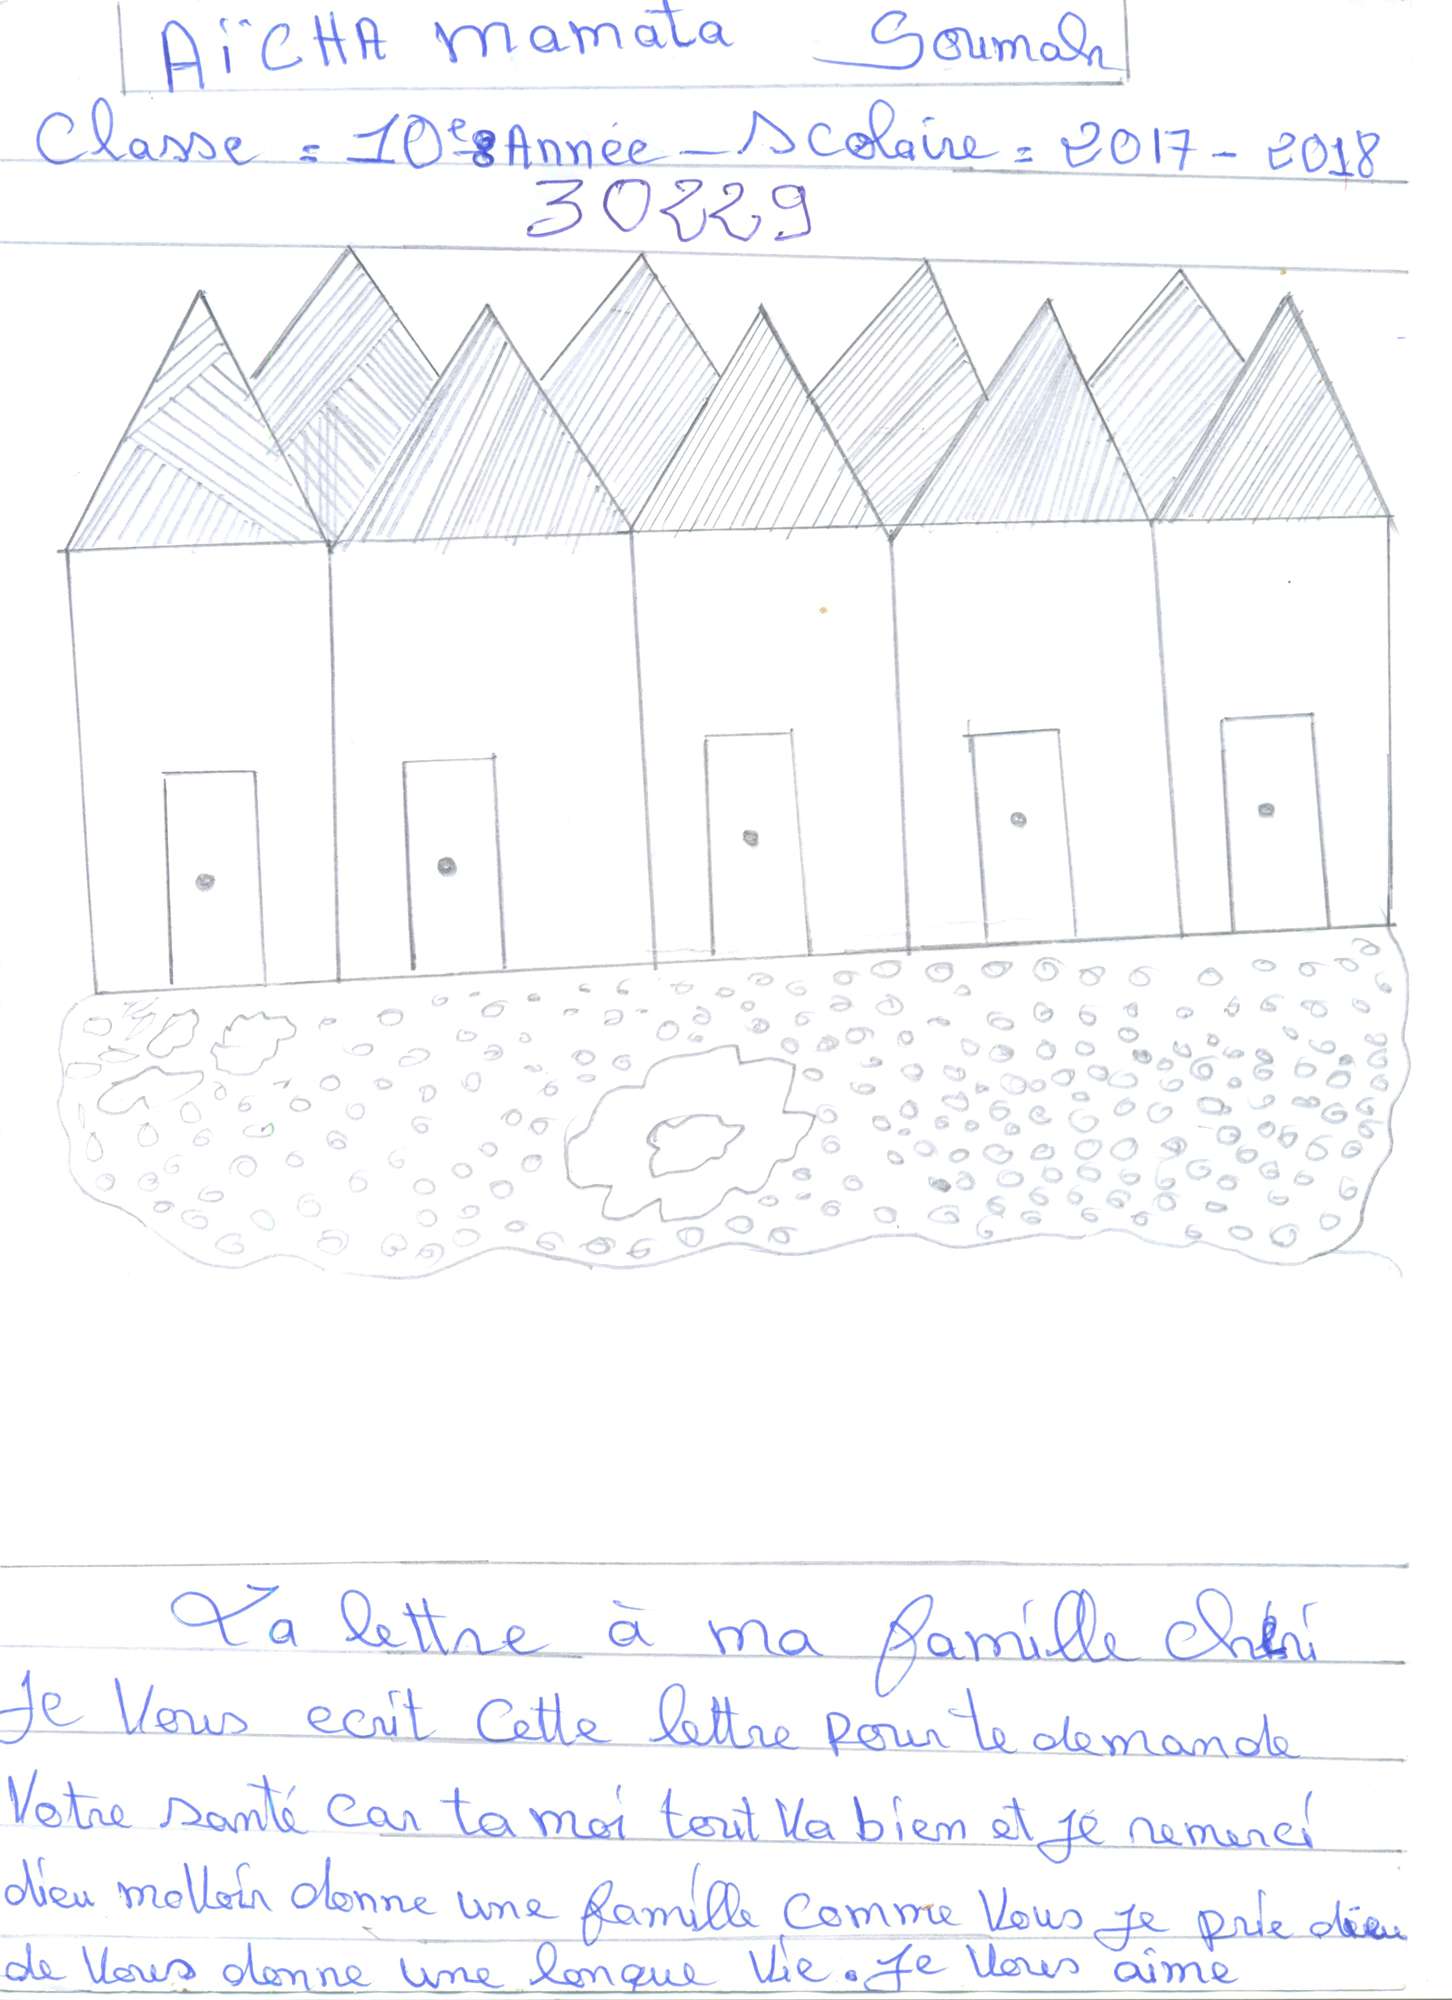 AÏCHA mamata Soumah
Classe = 10e Année - Scolaire = 2017 - 2018
30229
La lettre à ma famille chéri
Je Vous ecrit cette lettre pour te demande
Votre santé car ta moi tout va bien et je remerci
dieu mavoir donne une famille comme Vous je prie dieu
de Vous donne une longue vie. Je Vous aime